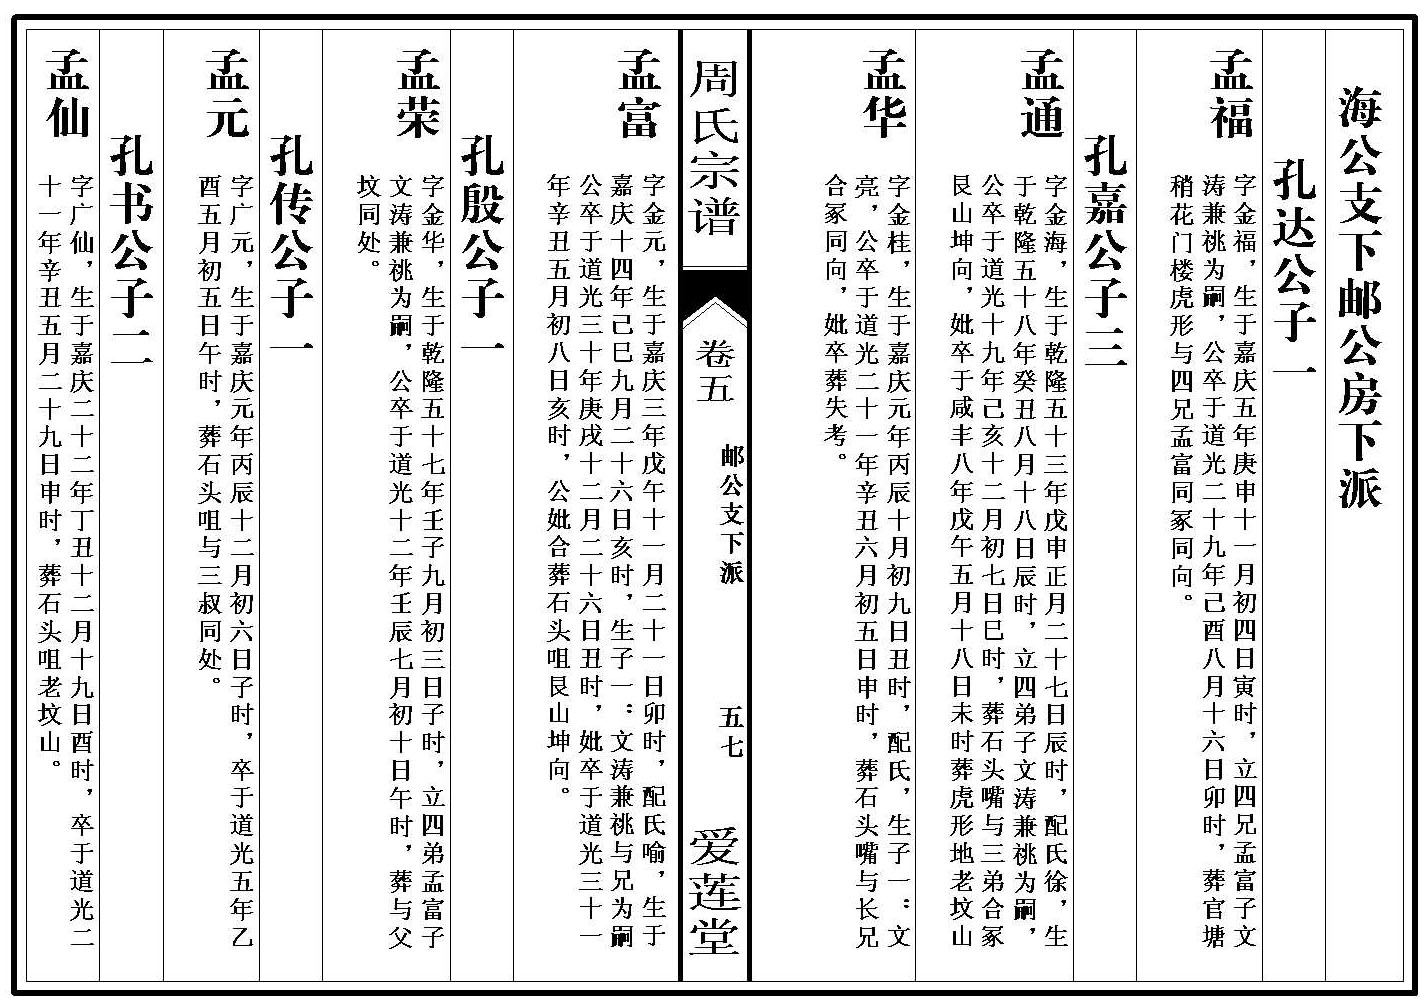 海公支下邮公房下派
孔达公子一
孟福
字金福，生于嘉庆五年庚申十一月初四日寅时，立四兄孟富子文
涛兼祧为嗣，公卒于道光二十九年己酉八月十六日卯时，葬官塘
稍花门楼虎形与四兄孟富同冢同向。
孔嘉公子三
孟通
字金海，生于乾隆五十三年戊申正月二十七日辰时，配氏徐，生
于乾隆五十八年癸丑八月十八日辰时，立四弟子文涛兼祧为嗣，
公卒于道光十九年己亥十二月初七日巳时，葬石头嘴与三弟合冢
艮山坤向，妣卒于咸丰八年戊午五月十八日未时葬虎形地老坟山
孟华
字金桂，生于嘉庆元年丙辰十月初九日丑时，配氏，生子一：文
亮，公卒于道光二十一年辛丑六月初五日申时，葬石头嘴与长兄
合冢同向，妣卒葬失考。
周氏宗谱
卷五
邮公支下派
五七
爱莲堂
孟富
字金元，生于嘉庆三年戊午十一月二十一日卯时，配氏喻，生于
嘉庆十四年己巳九月二十六日亥时，生子一：文涛兼祧与兄为嗣
公卒于道光三十年庚戌十二月二十六日丑时，妣卒于道光三十一
年辛丑五月初八日亥时，公妣合葬石头咀艮山坤向。
孔殷公子一
孟荣
字金华，生于乾隆五十七年壬子九月初三日子时，立四弟孟富子
文涛兼祧为嗣，公卒于道光十二年壬辰七月初十日午时，葬与父
坟同处。
孔传公子一
孟元
字广元，生于嘉庆元年丙辰十二月初六日子时，卒于道光五年乙
酉五月初五日午时，葬石头咀与三叔同处。
孔书公子二
孟仙
字广仙，生于嘉庆二十二年丁丑十二月十九日酉时，卒于道光二
十一年辛丑五月二十九日申时，葬石头咀老坟山。